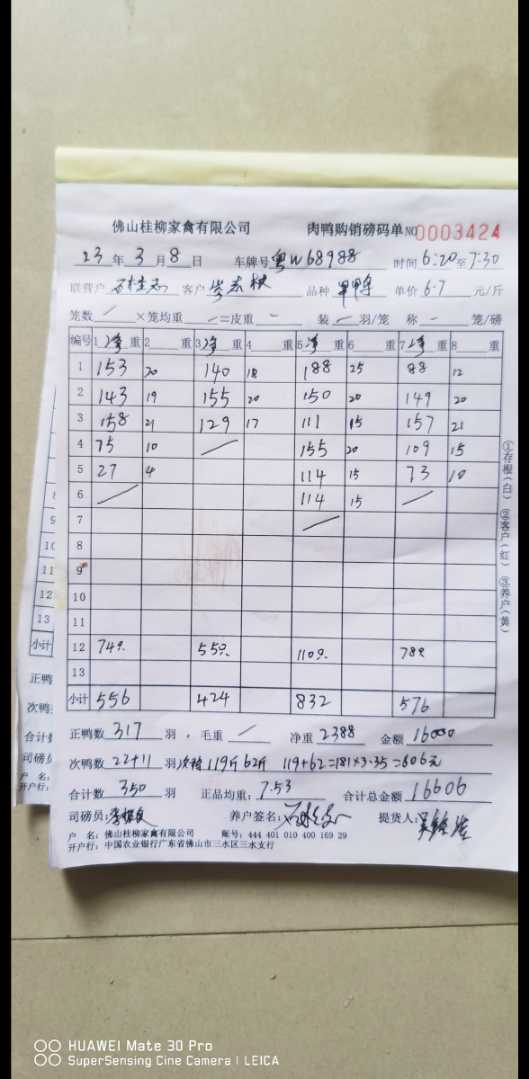 佛山桂柳家禽有限公司 肉鸭购销磅码单 NO 0003424
23年3月8日 车牌号粤W68988 时间6:20至7:30
联营户 客户 品种 单价6.7元/斤
笼数 ×笼均重 =皮重 装 羽/笼 称 笼/磅
编号 1净重 2 重 3净重 4 重 5净重 6 重 7净重 8 重
1 153 20 140 18 188 25 88 12
2 143 19 155 20 150 20 149 20
3 158 21 129 17 111 15 157 21
4 75 10 155 20 109 15
5 27 4 114 15 73 10
6 114 15
7
8
9
10
11
12 74只 55只 110只 78只
13
小计 556 424 832 576
正鸭数317羽 毛重 净重2388 金额16000
次鸭数22+11羽 119斤 62斤 119+62=181×3.35=606元
合计数350羽 正品均重:7.53 合计总金额16606
司磅员: 养户签名: 提货人:
户 名:佛山桂柳家禽有限公司 账号:444 401 010 400 169 29
开户行:中国农业银行广东省佛山市三水区三水支行
①存根(白) ②客户(红) ③养户(黄)
9
10
11
12
13
小计
正鸭
次鸭
合计数
司磅员
户 名:
开户行:
HUAWEI Mate 30 Pro
SuperSensing Cine Camera | LEICA